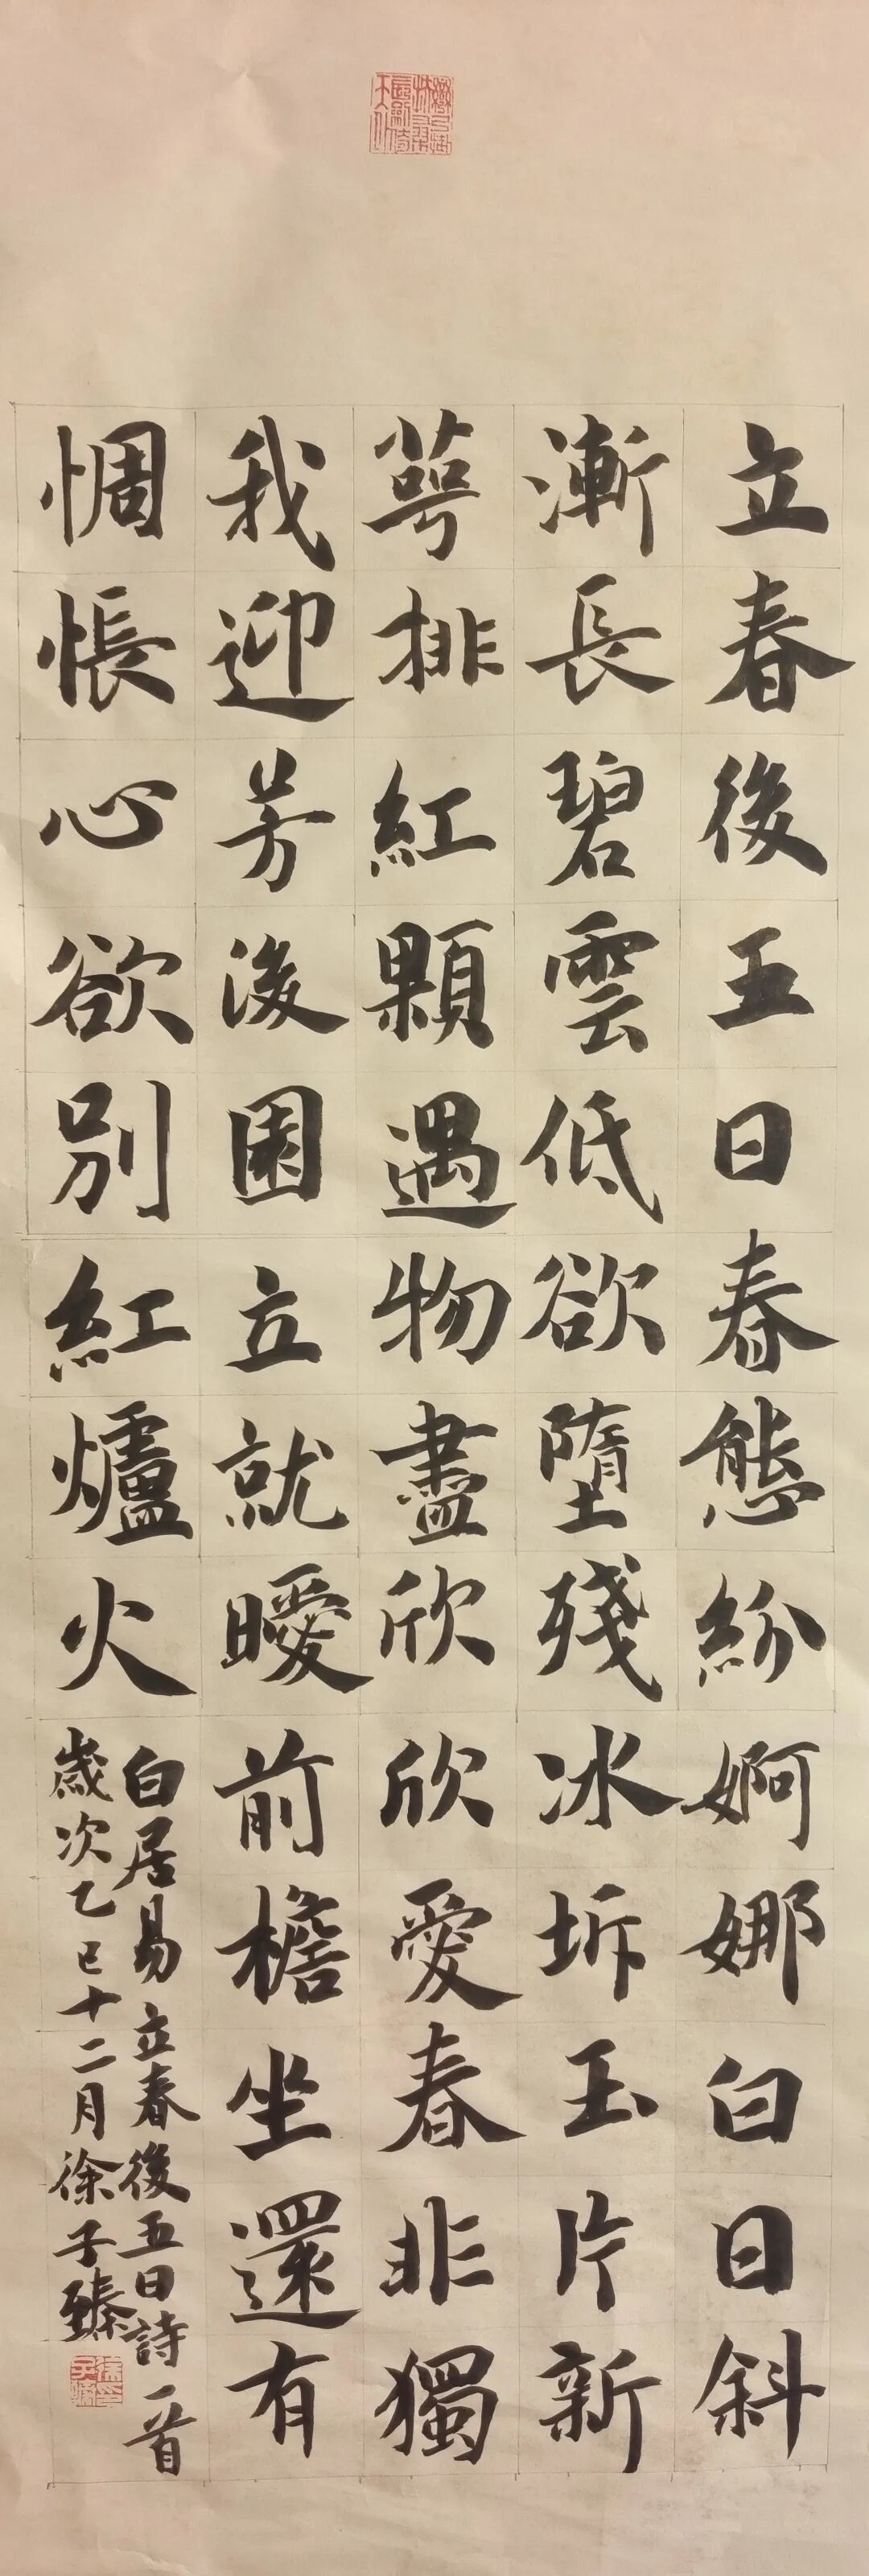 立春後五日春態紛婀娜白日斜
漸長碧雲低欲墮殘冰坼玉片新
萼排紅顆遇物盡欣欣愛春非獨
我迎芳後園立就曖前檐坐還有
惆悵心欲別紅爐火
白居易立春後五日詩一首
歲次乙巳十二月徐子臻